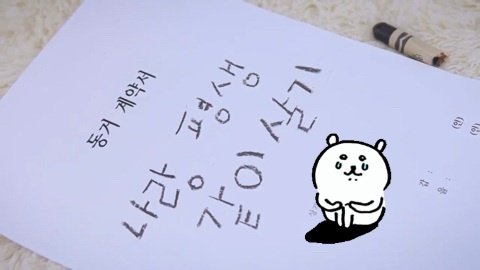 동거 계약서
나랑 평생
같이 살기
갑 :
을 :
(인)
(인)